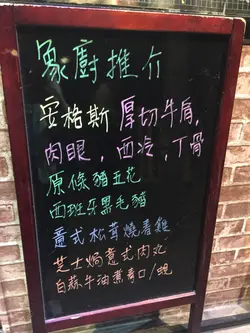 象廚推介
安格斯厚切牛肩,
肉眼,西冷,丁骨
原條豬五花
西班牙黑毛豬
意式松茸燒春雞
芝士焗意式肉丸
白蒜牛油煮青口/蜆